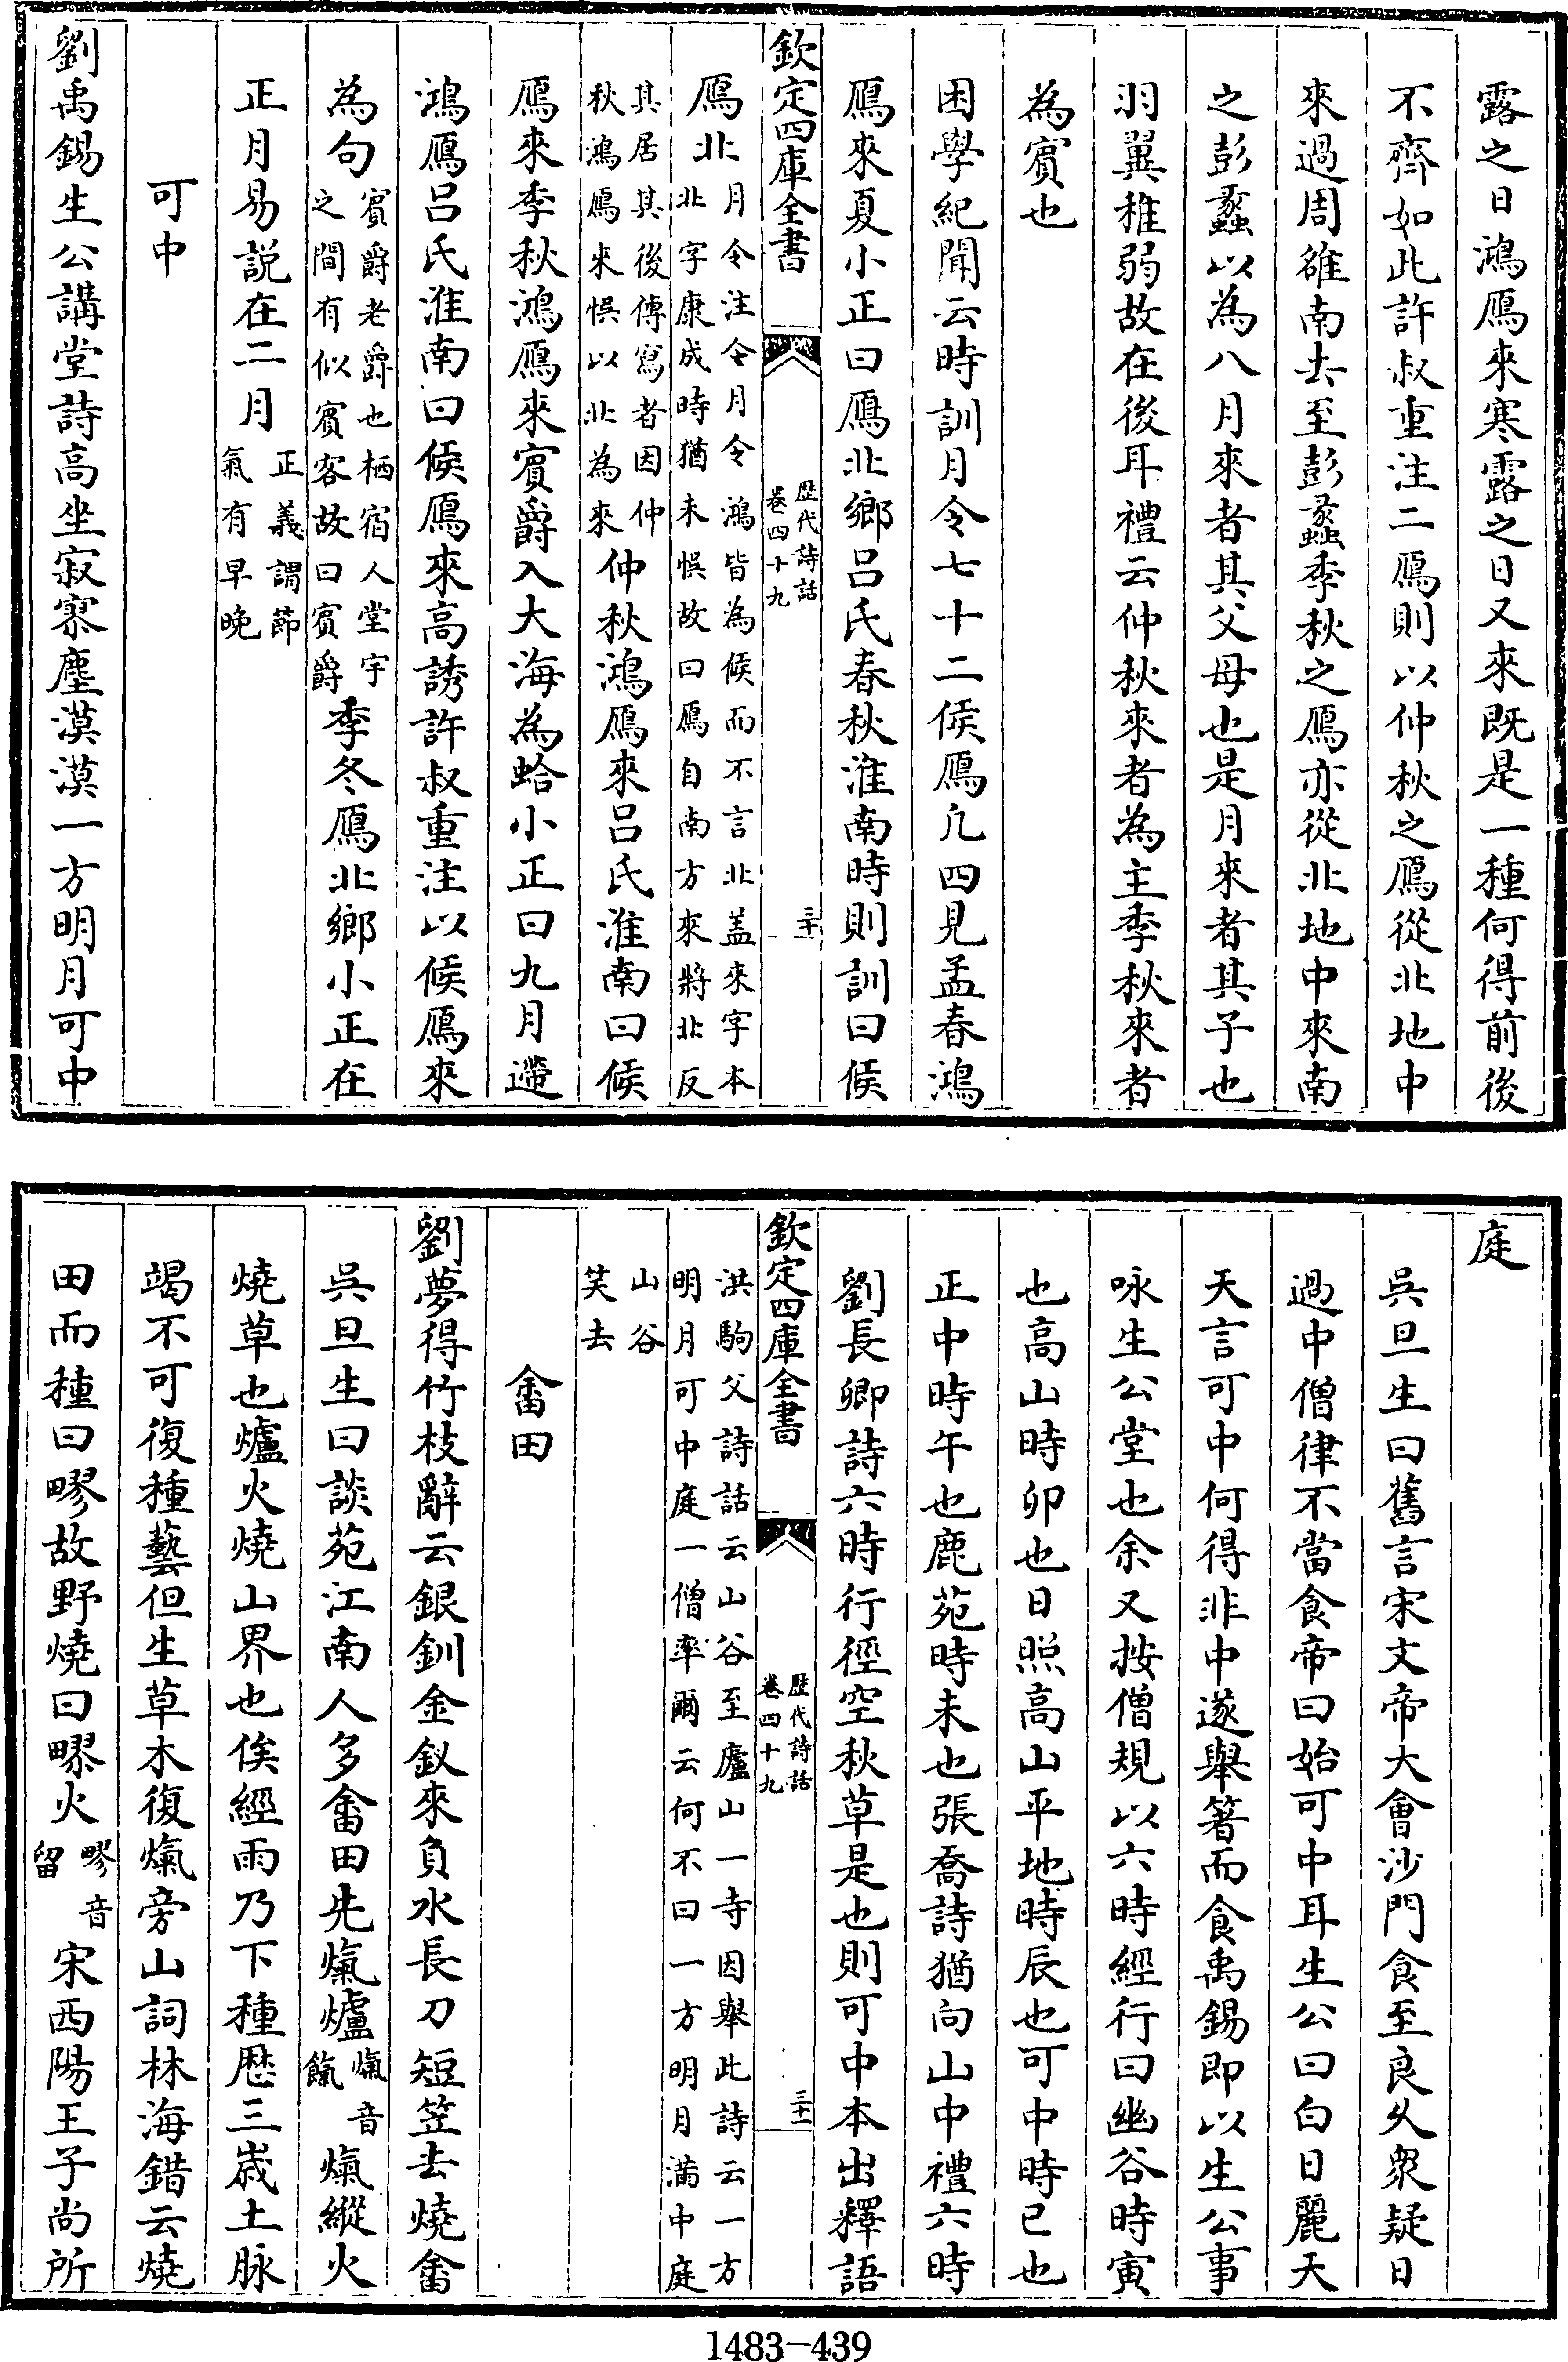 露之日鴻鴈來寒露之日又來既是一種何得前後
不齊如此許叔重注二鴈則以仲秋之鴈從北地中
來過周雒南去至彭蠡季秋之鴈亦從北地中來南
之彭蠡以為八月來者其父母也是月來者其子也
羽翼稚弱故在後耳禮云仲秋來者為主季秋來者
為賓也
困學紀聞云時訓月令七十二候鴈凢四見孟春鴻
鴈來夏小正曰鴈北鄉吕氏春秋淮南時則訓曰候
欽定四庫全書
歴代詩話
卷四十九
三十
鴈北
月令注今月令鴻皆為候而不言北盖來字本
北字康成時猶未悞故曰鴈自南方來將北反
其居其後傳寫者因仲
秋鴻鴈來悞以北為來
仲秋鴻鴈來吕氏淮南曰候
鴈來季秋鴻鴈來賓爵入大海為蛤小正曰九月遰
鴻鴈吕氏淮南曰候鴈來高誘許叔重注以候鴈來
為句
賓爵老爵也栖宿人堂宇
之間有似賓客故曰賓爵
季冬鴈北鄉小正在
正月易説在二月
正義謂節
氣有早晚
可中
劉禹錫生公講堂詩高坐寂寥塵漠漠一方明月可中
庭
吳旦生曰舊言宋文帝大會沙門食至良乆衆疑日
過中僧律不當食帝曰始可中耳生公曰白日麗天
天言可中何得非中遂舉箸而食禹錫即以生公事
咏生公堂也余又按僧規以六時經行曰幽谷時寅
也高山時卯也日照高山平地時辰也可中時巳也
正中時午也鹿苑時未也張喬詩猶向山中禮六時
劉長卿詩六時行徑空秋草是也則可中本出釋語
欽定四庫全書
歴代詩話
卷四十九
三十一
洪駒父詩話云山谷至廬山一寺因舉此詩云一方
明月可中庭一僧率爾云何不曰一方明月滿中庭
山谷
笑去
畬田
劉夢得竹枝辭云銀釧金釵來負水長刀短笠去燒畬
吳旦生曰談苑江南人多畬田先爊爐
爊音
餼
爊縱火
燒草也爐火燒山界也俟經雨乃下種歴三歲土脉
竭不可復種藝但生草木復爊旁山詞林海錯云燒
田而種曰疁故野燒曰疁火
疁音
留
宋西陽王子尚所
1483-439